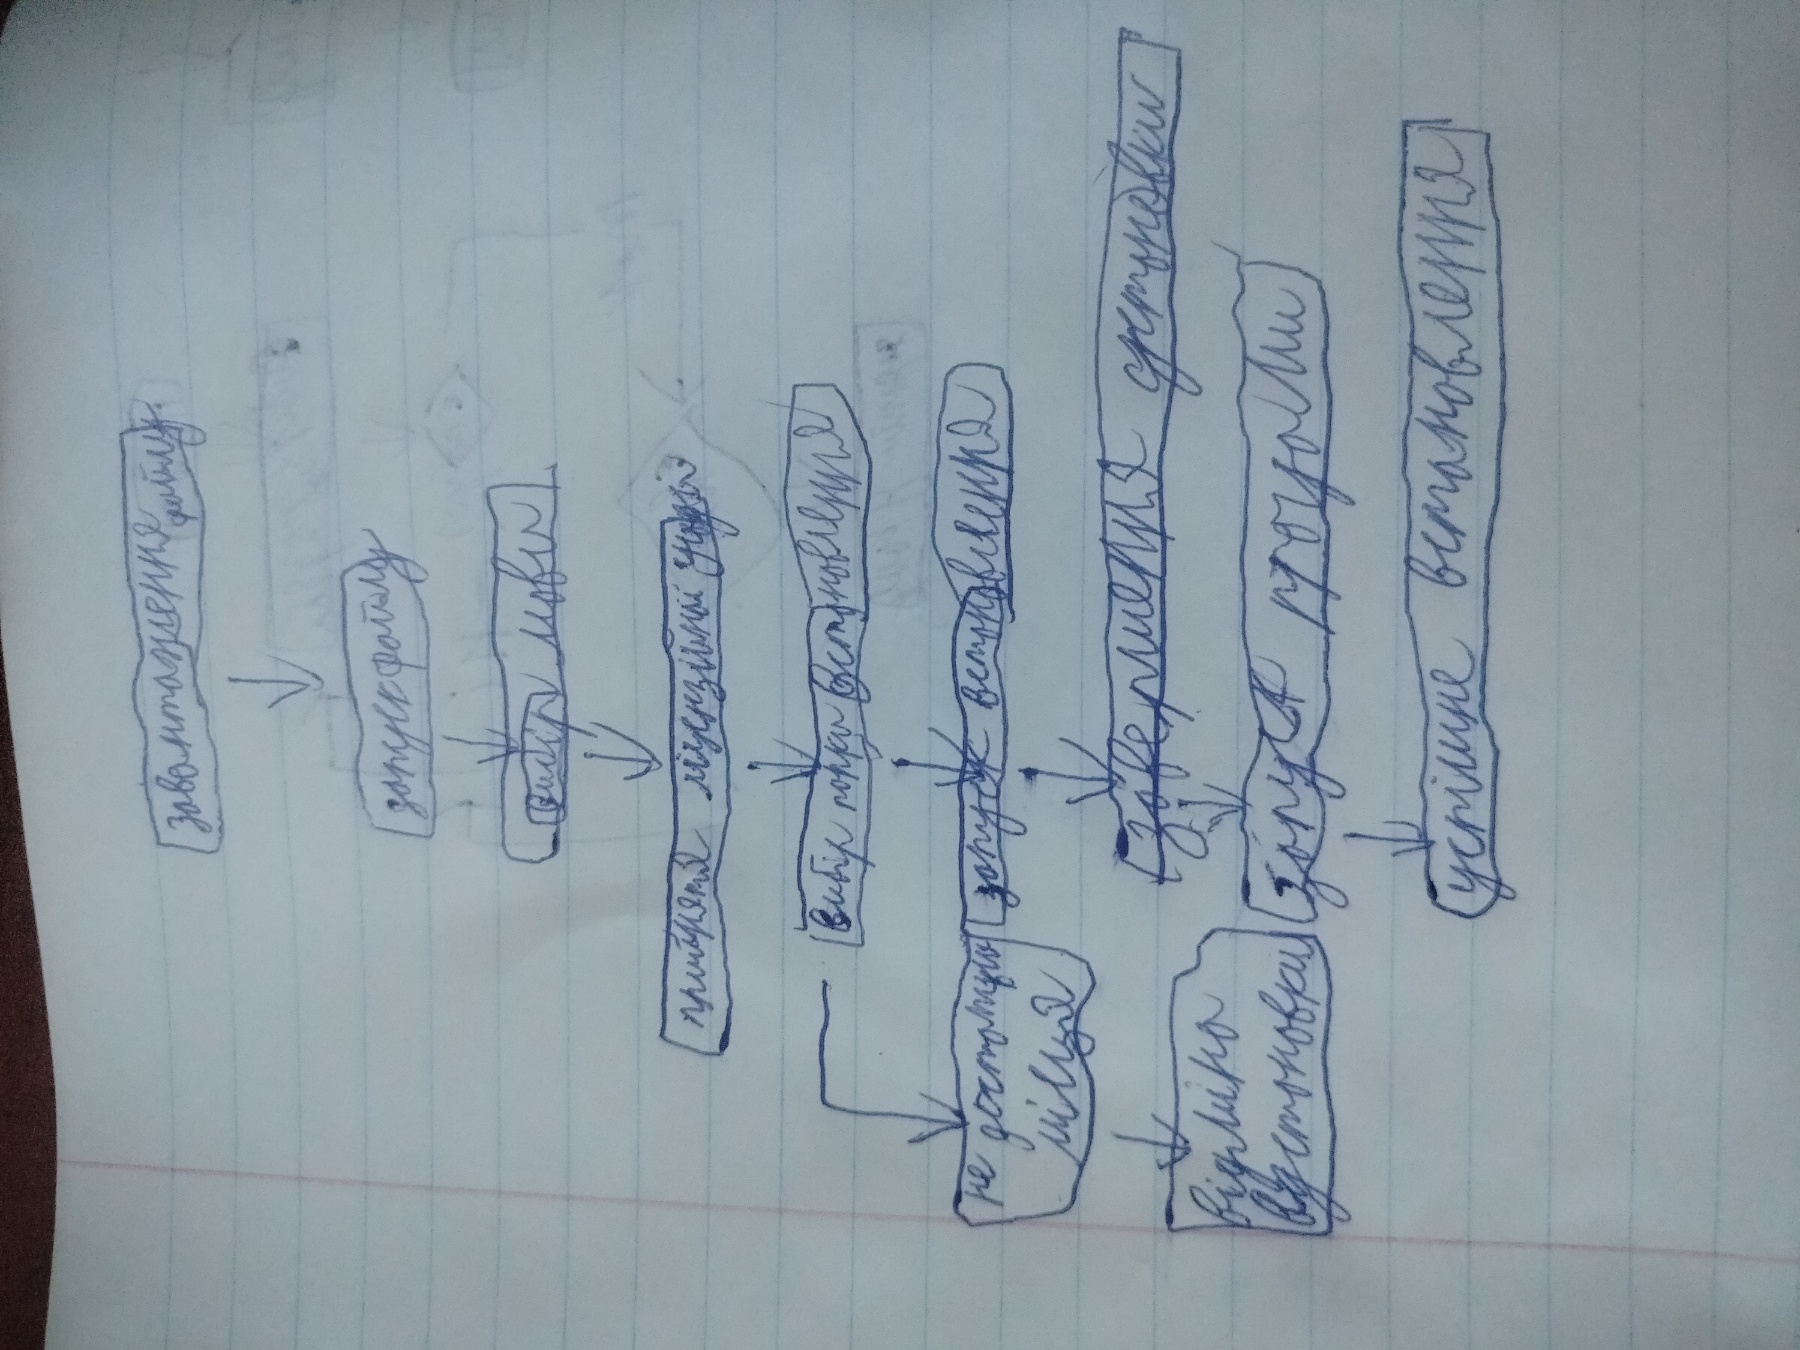 завантаження файлу
запуск файлу
вибір мови
прийнятя ліцензійної угоди
вибір попки встановлення
не достатньо
місця
запуск встановлення
завершення установки
відміна
вустановки
запуск програми
успішне встановлення